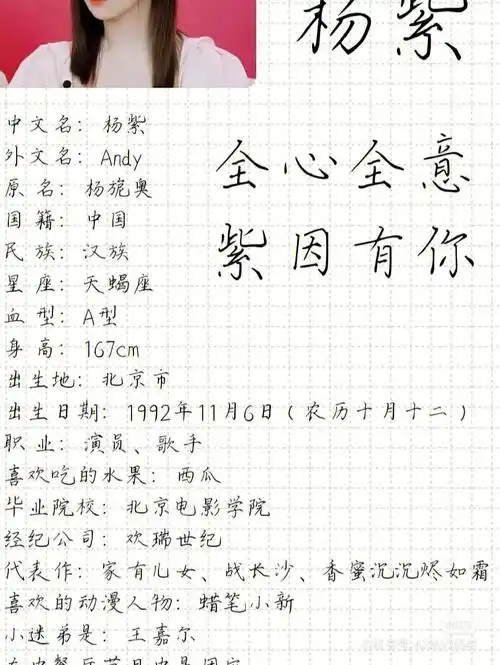 杨紫
全心全意
紫因有你
中文名：杨紫
外文名：Andy
原名：杨旎奥
国籍：中国
民族：汉族
星座：天蝎座
血型：A型
身高：167cm
出生地：北京市
出生日期：1992年11月6日（农历十月十二）
职业：演员、歌手
喜欢吃的水果：西瓜
毕业院校：北京电影学院
经纪公司：欢瑞世纪
代表作：家有儿女、战长沙、香蜜沉沉烬如霜
喜欢的动漫人物：蜡笔小新
小迷弟是：王嘉尔